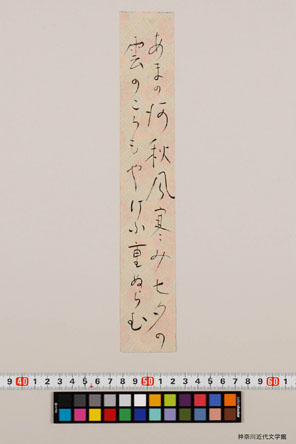 あまの河秋風寒み七夕の
雲のころもやけふ重ぬらむ
9 40 1 2 3 4 5 6 7 8 9 50 1 2 3 4 5 6 7 8 9 60 1
神奈川近代文学館